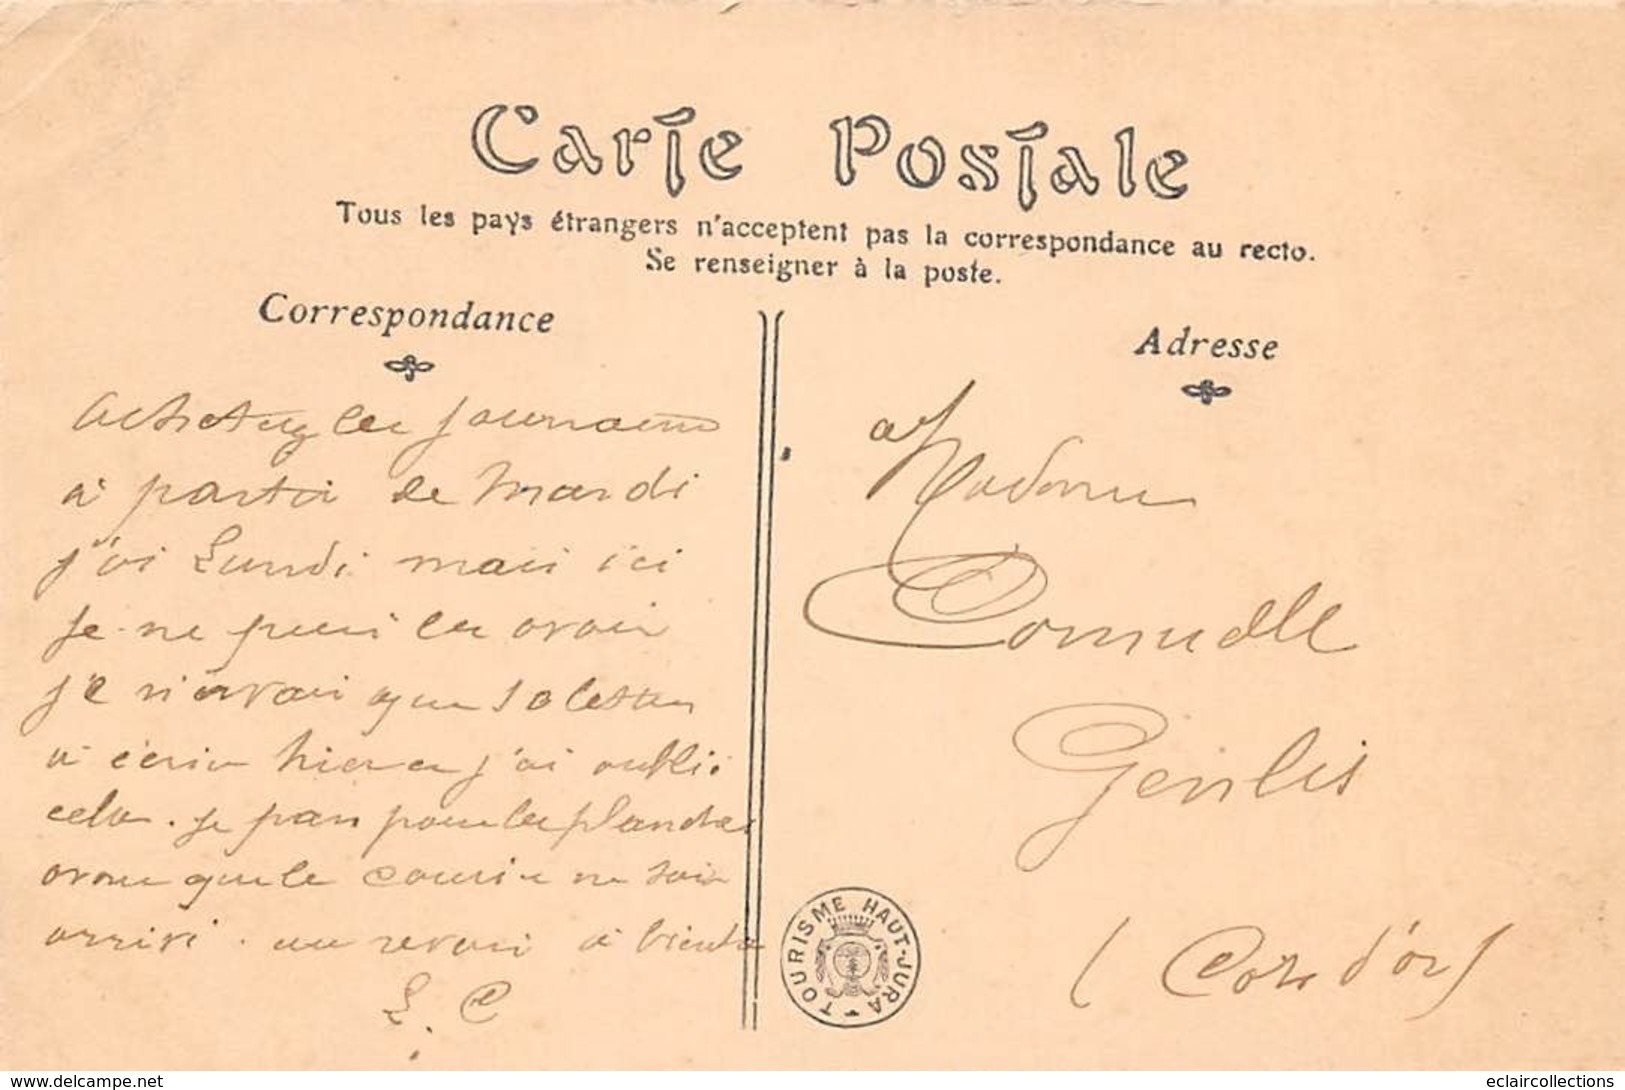 Carte Postale
Tous les pays étrangers n'acceptent pas la correspondance au recto.
Se renseigner à la poste.
Correspondance
Adresse
achetez les journaux
à partir de mardi
j'ai Lundi mais ici
je ne puis les avoir
je n'avais que
à écrire hier j'ai oublié
cela. je pars pour les planches
avant que le courrier ne soit
arrivé. au revoir à bientôt
L. C
a Madame
Cornuelle
Genlis
(Cote d'or)
TOURISME HAUT-JURA
www.delcampe.net
eclaircollections